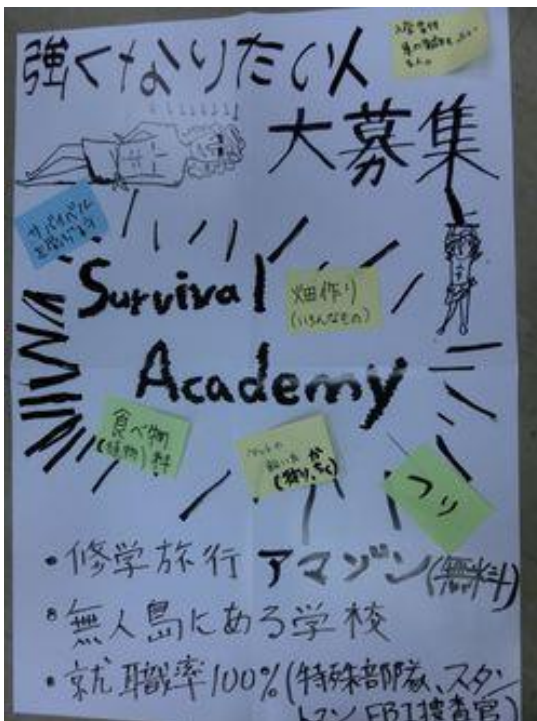 強くなりたい人
大募集
サバイバル
Survival
畑作り
(いろんなもの)
Academy
食べ物
(植物)科
(狩り、ちく)
つり
・修学旅行 アマゾン(無料)
・無人島にある学校
・就職率100%(特殊部隊、スタン
トマン FBI捜査官)